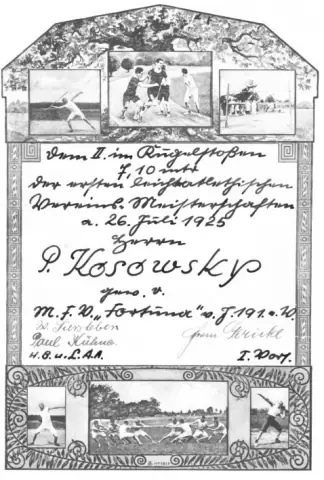 Dem II. im Kugelstoßen
7,10 mtr
der ersten leichtathletischen
Vereins-Meisterschaften
a. 26. Juli 1925
Herrn
P. Kosowsky
gew. v.
M.F.V. „Fortuna" v. J.
Paul Kühne
I. Vors.